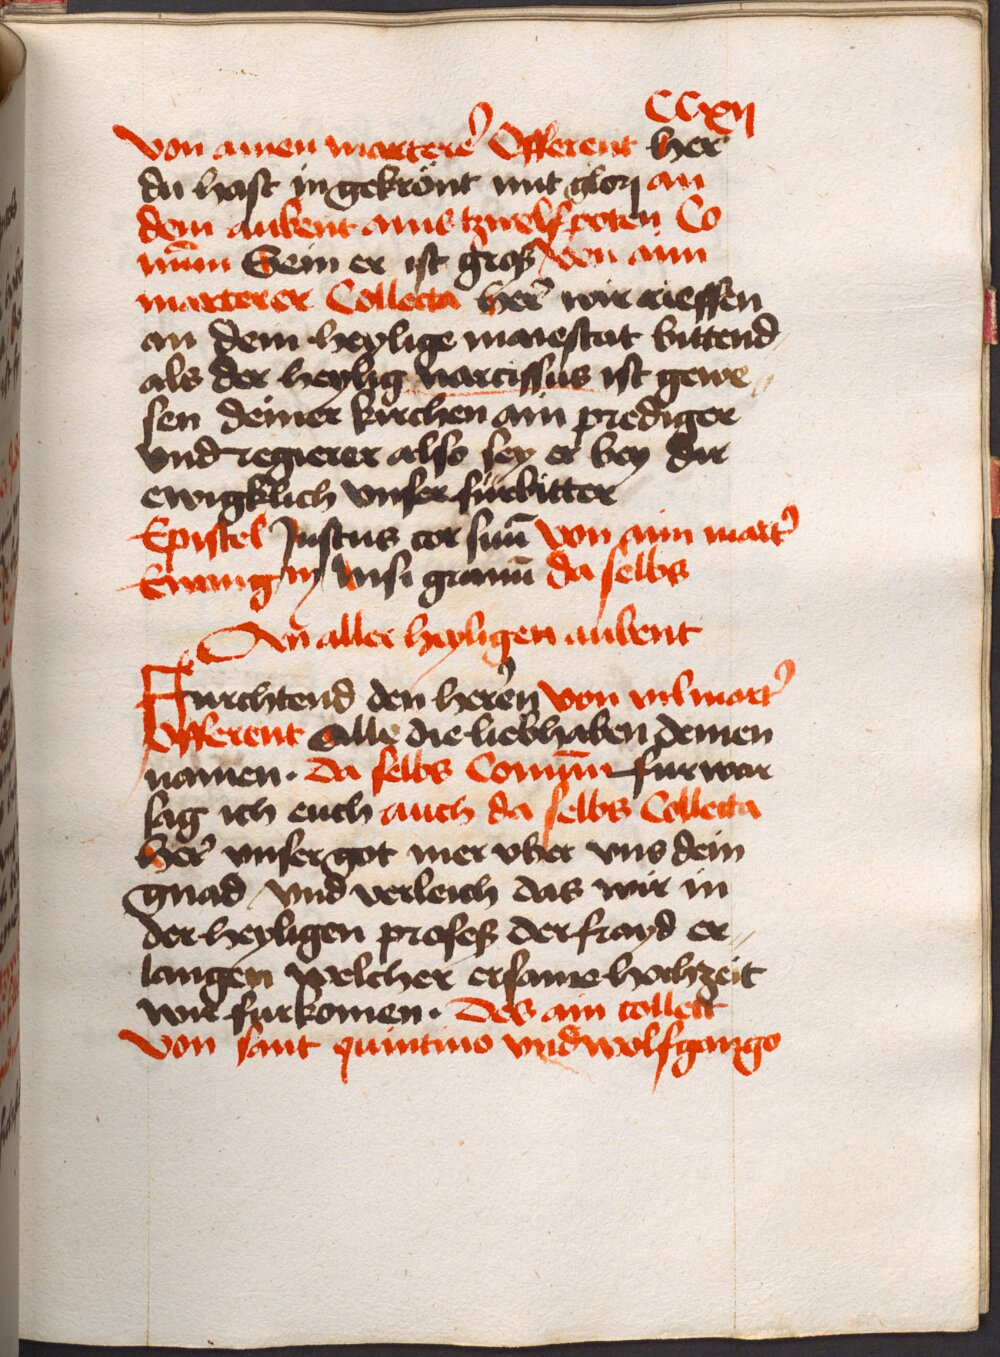 CCxij
von ainen martererˀ Offerent herˀ
du hast in gekrönt mit glorj an
dem aubent ains tzwelfpoten Co
mūn Sein er ist groß von aim
marterer Collecta herˀ wir rieffen
an dein heylige maiestat bittend
als der heylig narcissus ist gewe
sen deiner kirchen ain prediger
vnd regierer also sey er bey dir
ewigklich vnser fürbitter
Epistel Justus cor suū von aim martˀ
Ewangm̄ Nisi granū da selbs
An aller heyligen aubent
Furchtend den herren von vil martˀ
Offerent Alle die liebhaben deinen
namen · da selbs Comūn fur war
sag ich euch auch da selbs Collecta
herˀ vnser got mer vber vns dein
gnad vnd verleich das wir in
der heyligen profeß der frayd er
langen welcher ersame hochzeit
wir furkomen · Des ain collect
von sant quintino vnd wolfgango